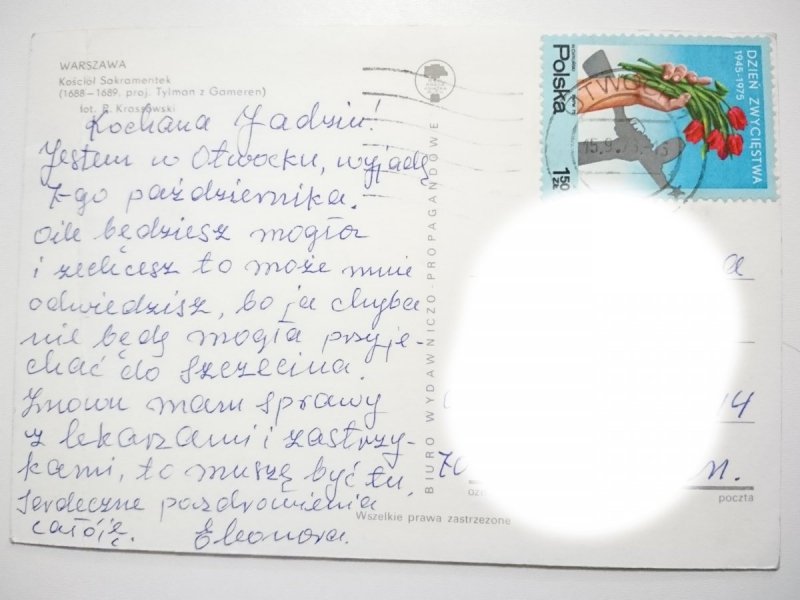 WARSZAWA
Kościół Sakramentek
(1688—1689, proj. Tylman z Gameren)
fot. R. Krassowski
Kochana Jadziu!
Jestem w Otwocku, wyjadę
7-go października.
Oile będziesz mogła
i zechcesz to może mnie
odwiedzisz, bo ja chyba
nie będę mogła przyje-
chać do Szczecina.
Znowu mam sprawy
z lekarzami i zastrzy-
kami, to muszę być tu.
Serdeczne pozdrowienia
całóję. Eleonora.
BIURO WYDAWNICZO-PROPAGANDOWE
Wszelkie prawa zastrzeżone
Polska
1,50 zł
DZIEŃ ZWYCIĘSTWA
1945-1975
OTWOCK
15.9.
a
14
70
n.
poczta